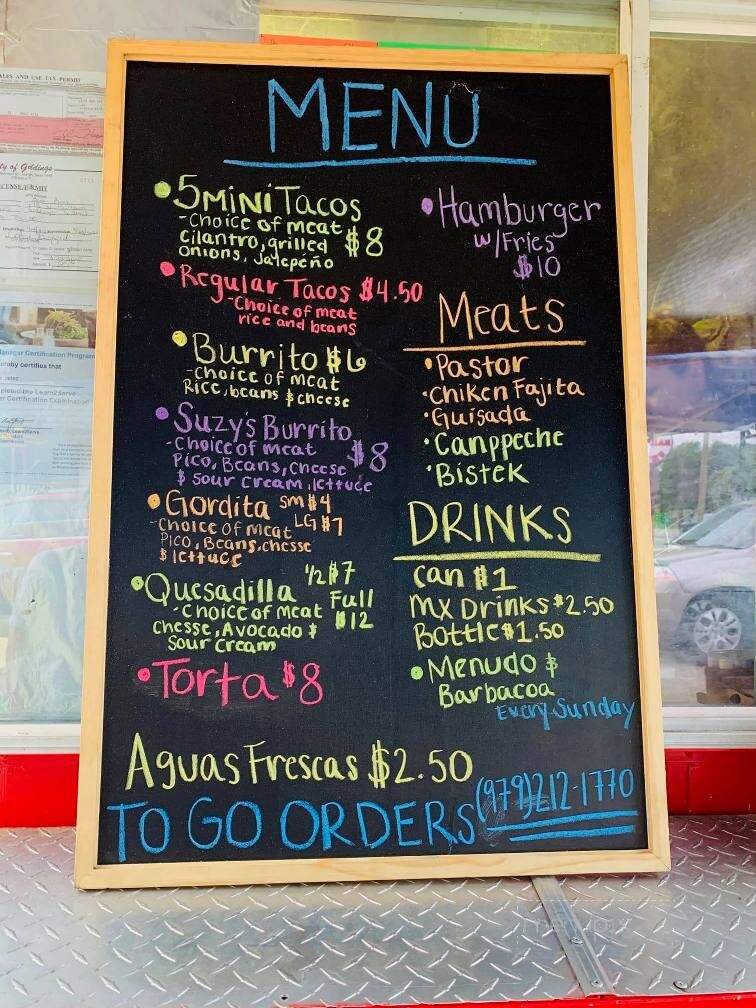 MENU
•5MiNi Tacos
-Choice of meat
Cilantro, grilled
onions, Jalepeño
$8
•Regular Tacos $4.50
-Choice of meat
rice and beans
•Burrito $6
-Choice of meat
Rice, beans $ cheese
•Suzy's Burrito
-Choice of meat
Pico, Beans, cheese
$ sour cream, lettuce
$8
•Gordita SM $4
LG $7
-Choice of meat
Pico, Beans, chesse
$ lettuce
•Quesadilla 1/2 $7
Full
$12
-Choice of meat
Chesse, Avocado $
Sour Cream
•Torta $8
•Hamburger
w/Fries
$10
Meats
•Pastor
•Chiken Fajita
•Guisada
•Canppeche
•Bistek
DRINKS
can $1
MX Drinks $2.50
Bottle $1.50
•Menudo $
Barbacoa
Every Sunday
Aguas Frescas $2.50
TO GO ORDERS (979)212-1770
SALES AND USE TAX PERMIT
City of Giddings
LICENSE/PERMIT
Manager Certification Program